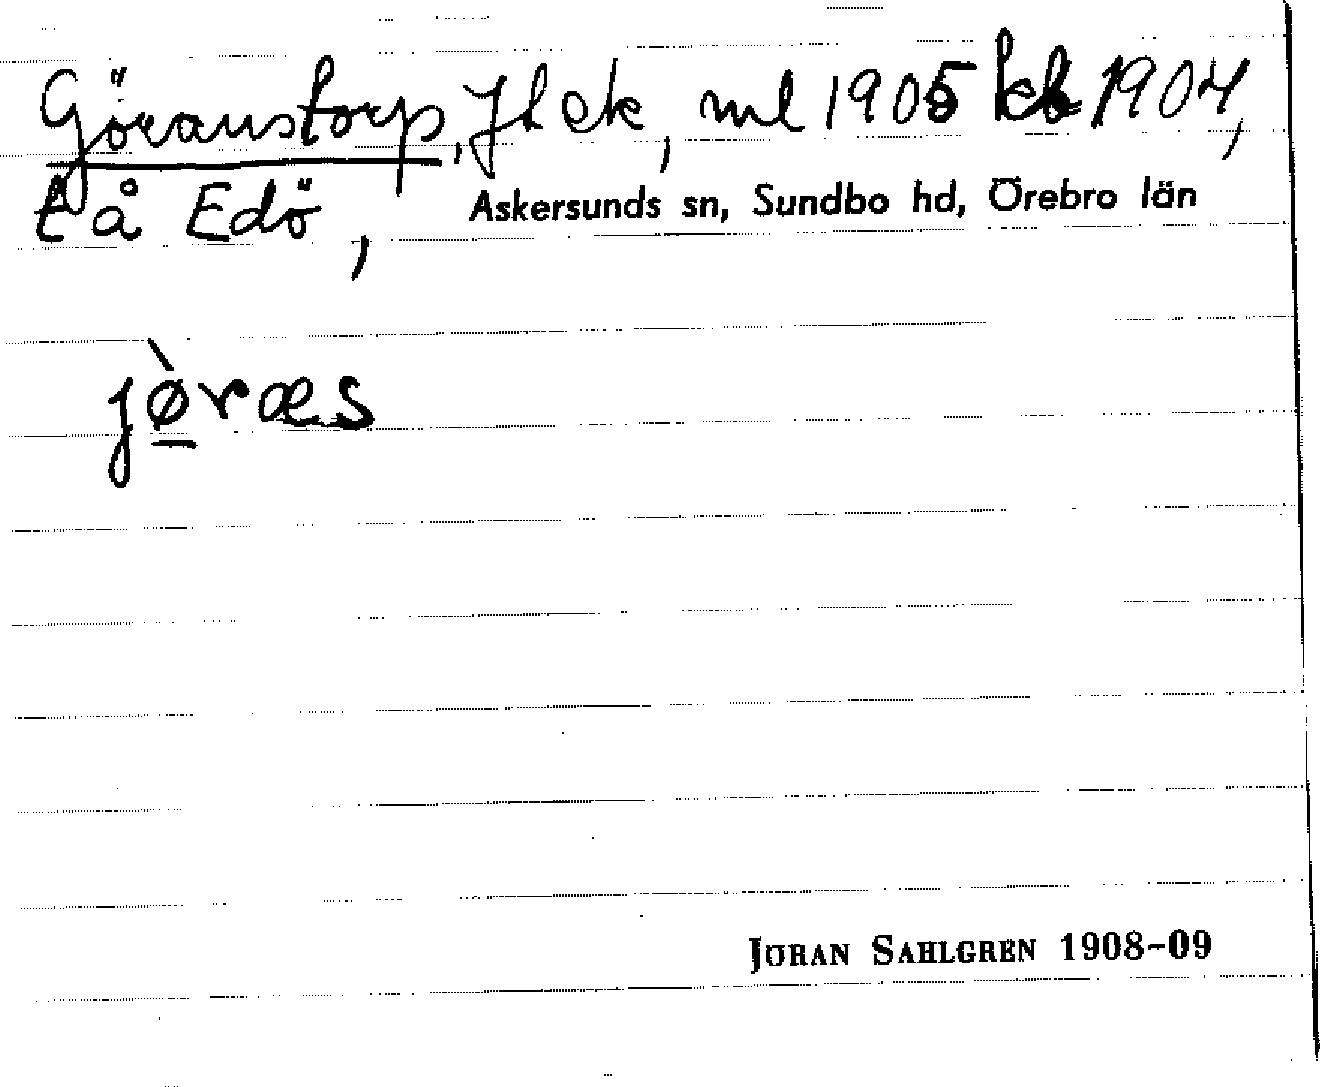 Göranstorp, Jl ek, ml 1905 kb 1904,
t å Edö, Askersunds sn, Sundbo hd, Örebro län
jø̀ræs
JÖRAN SAHLGREN 1908-09